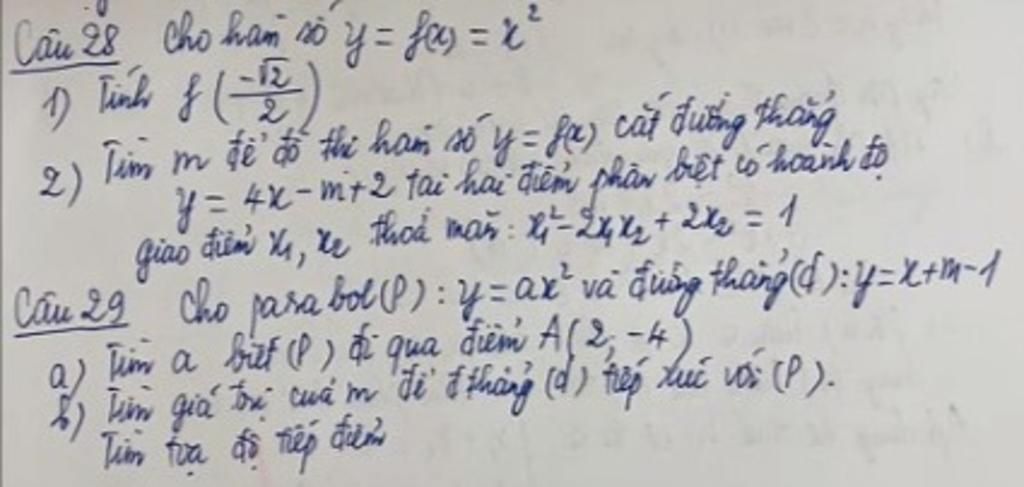 Câu 28 Cho hàm số y = f(x) = x²
1) Tính f(-√2/2)
2) Tìm m để đồ thị hàm số y = f(x) cắt đường thẳng
y = 4x - m + 2 tại hai điểm phân biệt có hoành độ
giao điểm x₁, x₂ thoả mãn: x₁² - 2x₁x₂ + 2x₂ = 1
Câu 29 Cho parabol (P): y = ax² và đường thẳng (d): y = x + m - 1
a) Tìm a biết (P) đi qua điểm A(2; -4)
b) Tìm giá trị của m để đ thẳng (d) tiếp xúc với (P).
Tìm tọa độ tiếp điểm